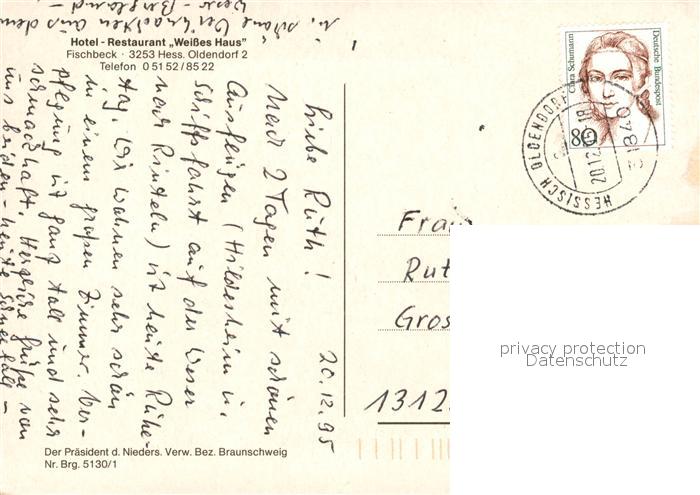 Hotel - Restaurant „Weißes Haus"
Fischbeck · 3253 Hess. Oldendorf 2
Telefon 0 51 52 / 85 22
20.12.95
Liebe Ruth!
Nach 2 Tagen mit schönen
Ausflügen (Hildesheim u.
Schiffsfahrt auf der Weser
nach Rinteln) ist heute Ruhe-
tag. Wir wohnen sehr schön
in einem großen Zimmer. Ver-
pflegung ist ganz toll und sehr
schmackhaft. Herzliche Grüße von
uns beiden - heute
u. schöne Weihnachten aus dem
Weser-Bergland -
Clara Schumann
Deutsche Bundespost
80
HESSISCH OLDENDORF
20.12.
31840
Frau
Rut
Gros
1312
privacy protection
Datenschutz
Der Präsident d. Nieders. Verw. Bez. Braunschweig
Nr. Brg. 5130/1